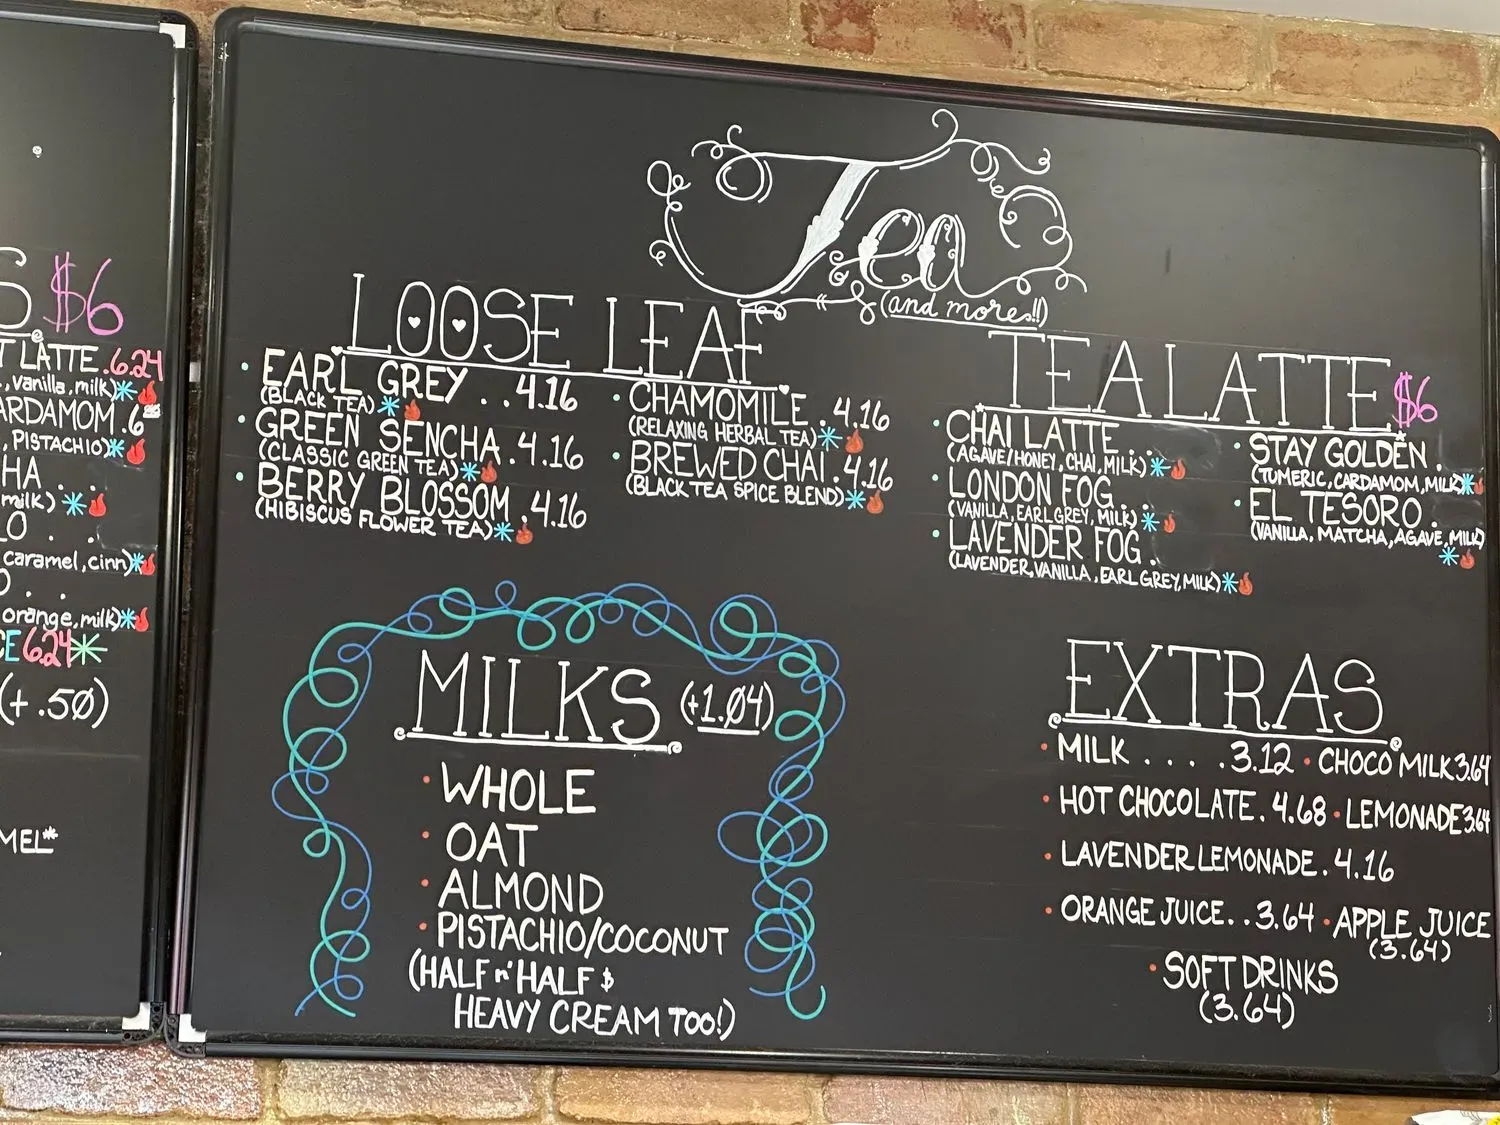 $6
LATTE.6.24
, vanilla, milk)
ARDAMOM.6
, PISTACHIO)
HA . .
milk)
LO . .
caramel, cinn)
O . .
orange, milk)
CE 6.24
(+ .50)
MEL*
Tea
(and more!!)
LOOSE LEAF
• EARL GREY . . 4.16
(BLACK TEA)
• GREEN SENCHA . 4.16
(CLASSIC GREEN TEA)
• BERRY BLOSSOM . 4.16
(HIBISCUS FLOWER TEA)
• CHAMOMILE . 4.16
(RELAXING HERBAL TEA)
• BREWED CHAI . 4.16
(BLACK TEA SPICE BLEND)
TEA LATTE $6
• CHAI LATTE . .
(AGAVE/HONEY, CHAI, MILK)
• LONDON FOG . .
(VANILLA, EARL GREY, MILK)
• LAVENDER FOG .
(LAVENDER, VANILLA, EARL GREY, MILK)
• STAY GOLDEN .
(TUMERIC, CARDAMOM, MILK)
• EL TESORO .
(VANILLA, MATCHA, AGAVE, MILK)
MILKS (+1.04)
• WHOLE
• OAT
• ALMOND
• PISTACHIO/COCONUT
(HALF n' HALF $
HEAVY CREAM TOO!)
EXTRAS
• MILK . . . . . 3.12 • CHOCO MILK 3.64
• HOT CHOCOLATE . 4.68 • LEMONADE 3.64
• LAVENDER LEMONADE . 4.16
• ORANGE JUICE . . 3.64 • APPLE JUICE
(3.64)
• SOFT DRINKS
(3.64)